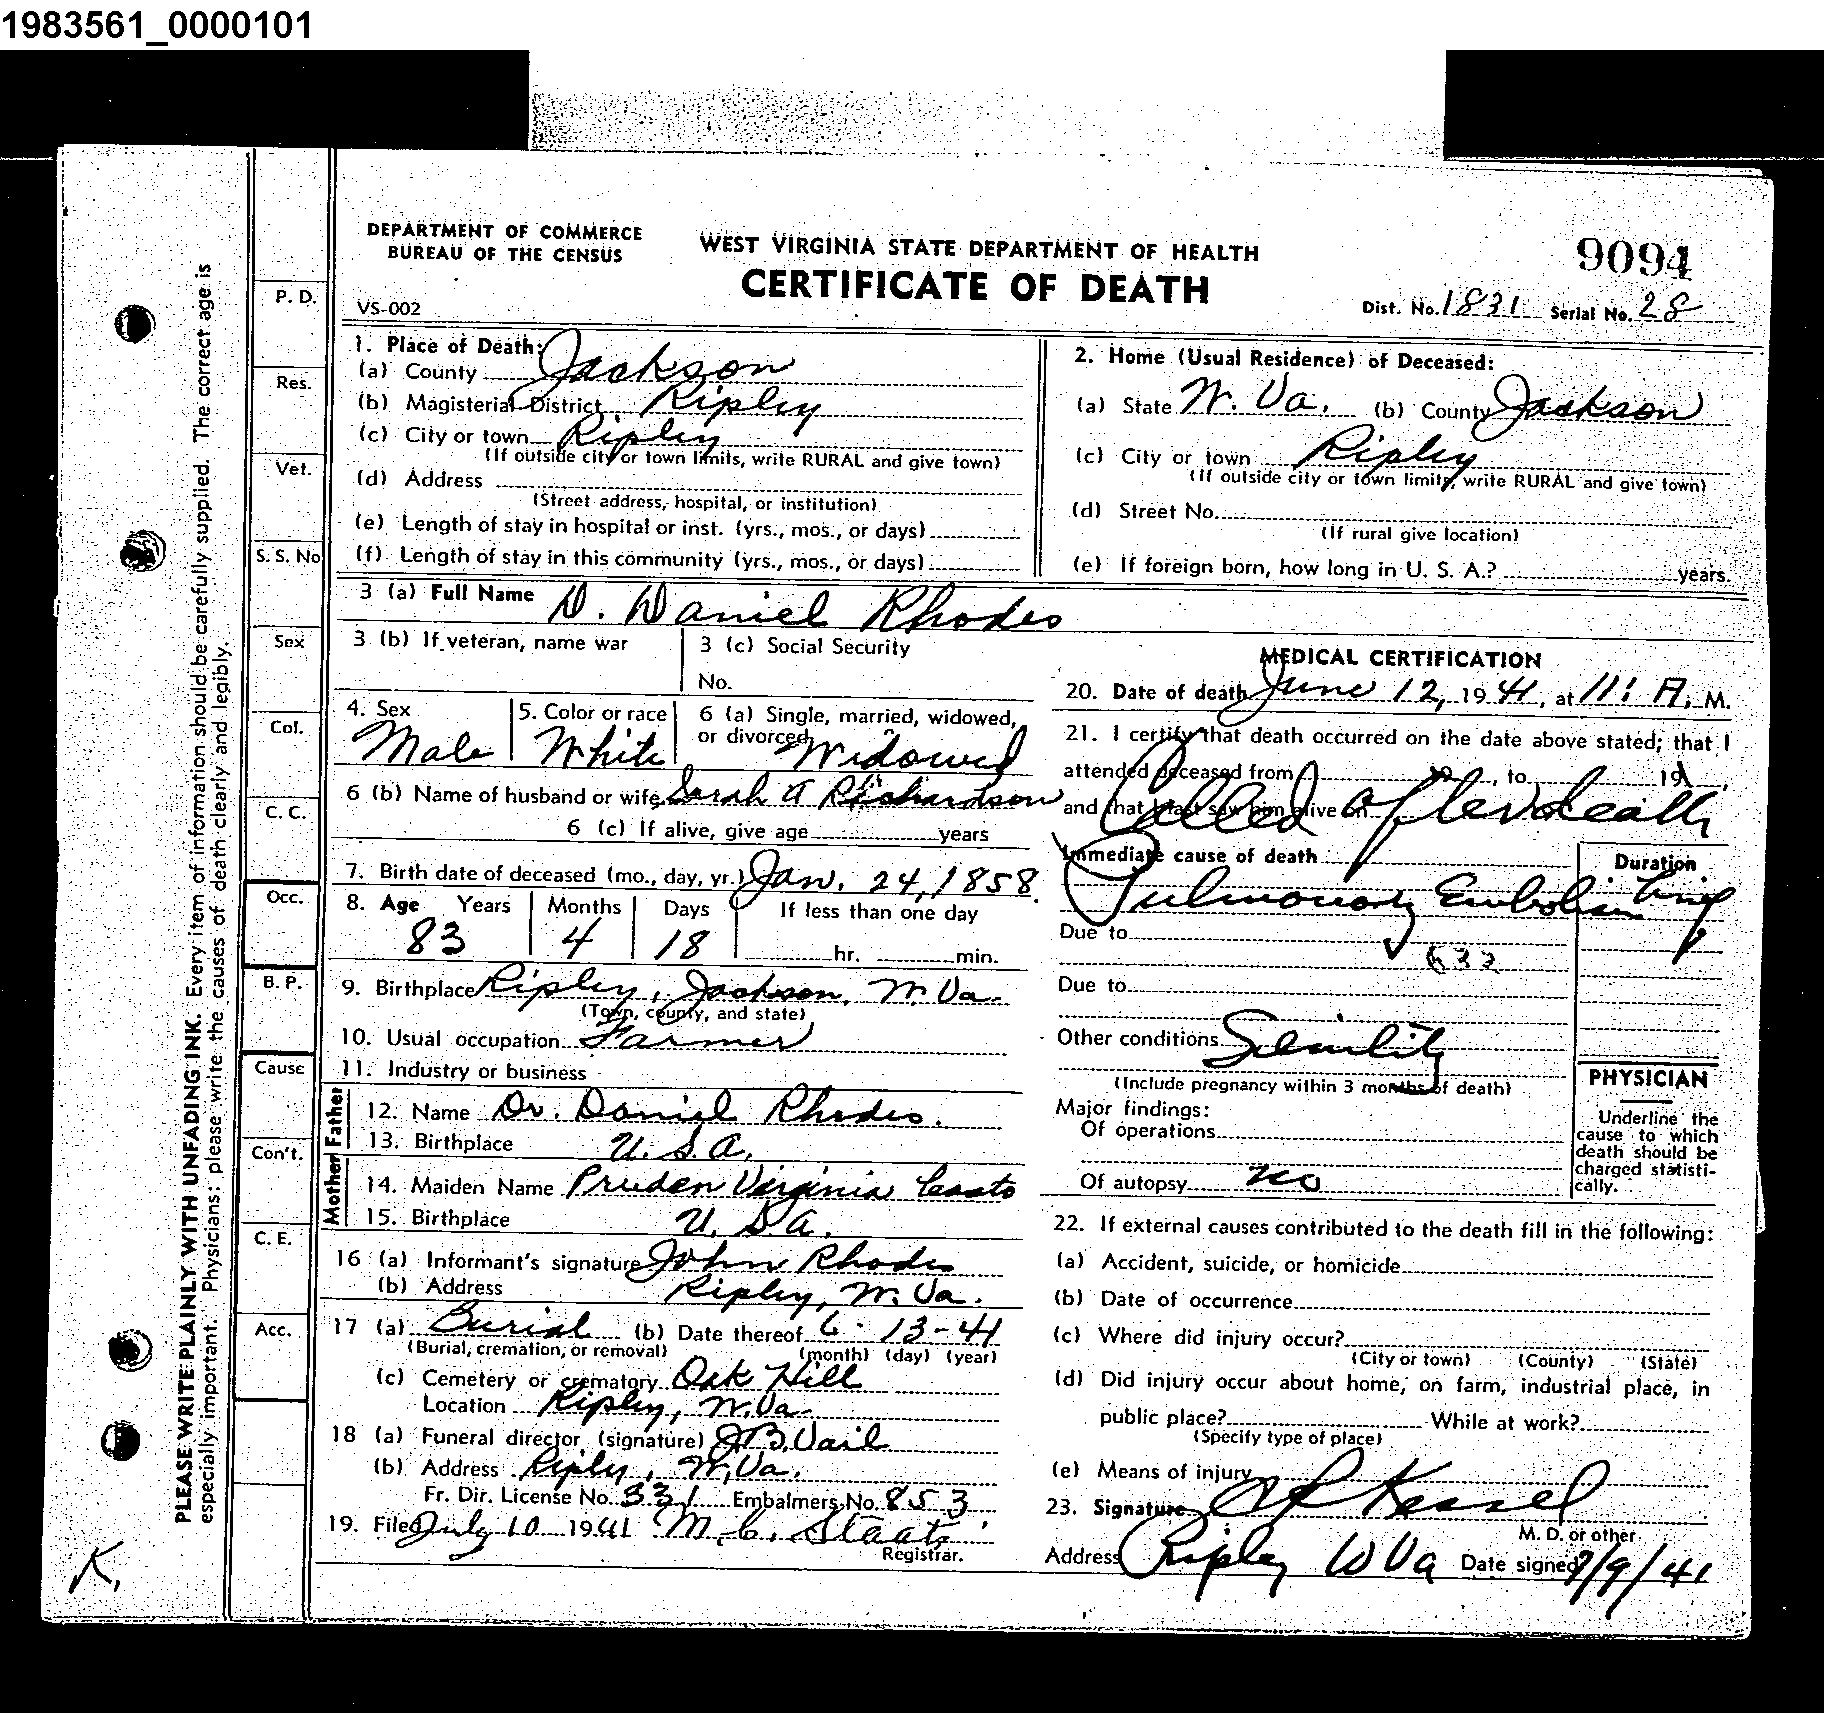 1983561_0000101
DEPARTMENT OF COMMERCE
BUREAU OF THE CENSUS
WEST VIRGINIA STATE DEPARTMENT OF HEALTH
CERTIFICATE OF DEATH
9094
VS-002
Dist. No. 1831 Serial No. 28
1. Place of Death:
(a) County Jackson
(b) Magisterial District Ripley
(c) City or town Ripley
(If outside city or town limits, write RURAL and give town)
(d) Address
(Street address, hospital, or institution)
(e) Length of stay in hospital or inst. (yrs., mos., or days)
(f) Length of stay in this community (yrs., mos., or days)
2. Home (Usual Residence) of Deceased:
(a) State W. Va. (b) County Jackson
(c) City or town Ripley
(If outside city or town limits, write RURAL and give town)
(d) Street No.
(If rural give location)
(e) If foreign born, how long in U. S. A.? years.
3 (a) Full Name D. Daniel Rhodes
3 (b) If veteran, name war
3 (c) Social Security
No.
4. Sex Male
5. Color or race White
6 (a) Single, married, widowed,
or divorced Widowed
6 (b) Name of husband or wife Sarah A Richardson
6 (c) If alive, give age years
7. Birth date of deceased (mo., day, yr.) Jan. 24, 1858.
8. Age Years Months Days If less than one day
83 4 18 hr. min.
9. Birthplace Ripley, Jackson, W Va.
(Town, county, and state)
10. Usual occupation Farmer
11. Industry or business
Father
12. Name Dr. Daniel Rhodes.
13. Birthplace U. S. A.
Mother
14. Maiden Name Pruden Virginia Casto
15. Birthplace U. S. A.
16 (a) Informant's signature John Rhodes
(b) Address Ripley, W. Va.
17 (a) Burial (b) Date thereof 6-13-41
(Burial, cremation, or removal) (month) (day) (year)
(c) Cemetery or crematory Oak Hill
Location Ripley, W. Va.
18 (a) Funeral director (signature) J.B. Vail
(b) Address Ripley, W. Va.
Fr. Dir. License No. 331 Embalmers No. 853
19. Filed July 10 1941 M. C. Staats
Registrar.
MEDICAL CERTIFICATION
20. Date of death June 12, 1941, at 11: A. M.
21. I certify that death occurred on the date above stated; that I
attended deceased from 19 , to 19 ,
and that I last saw him alive on
Called after death
Immediate cause of death
Duration
Pulmonary Embolism
Due to
Due to
Other conditions Senility
(Include pregnancy within 3 months of death)
Major findings:
Of operations
Of autopsy no
PHYSICIAN
Underline the
cause to which
death should be
charged statisti-
cally.
22. If external causes contributed to the death fill in the following:
(a) Accident, suicide, or homicide
(b) Date of occurrence
(c) Where did injury occur?
(City or town) (County) (State)
(d) Did injury occur about home, on farm, industrial place, in
public place? While at work?
(Specify type of place)
(e) Means of injury
23. Signature Kessel
M. D. or other
Address Ripley W Va Date signed 7/9/41
P. D.
Res.
Vet.
S. S. No
Sex
Col.
C. C.
Occ.
B. P.
Cause
Con't.
C. E.
Acc.
PLEASE WRITE PLAINLY WITH UNFADING INK. Every item of information should be carefully supplied. The correct age is
especially important. Physicians: please write the causes of death clearly and legibly.
K.